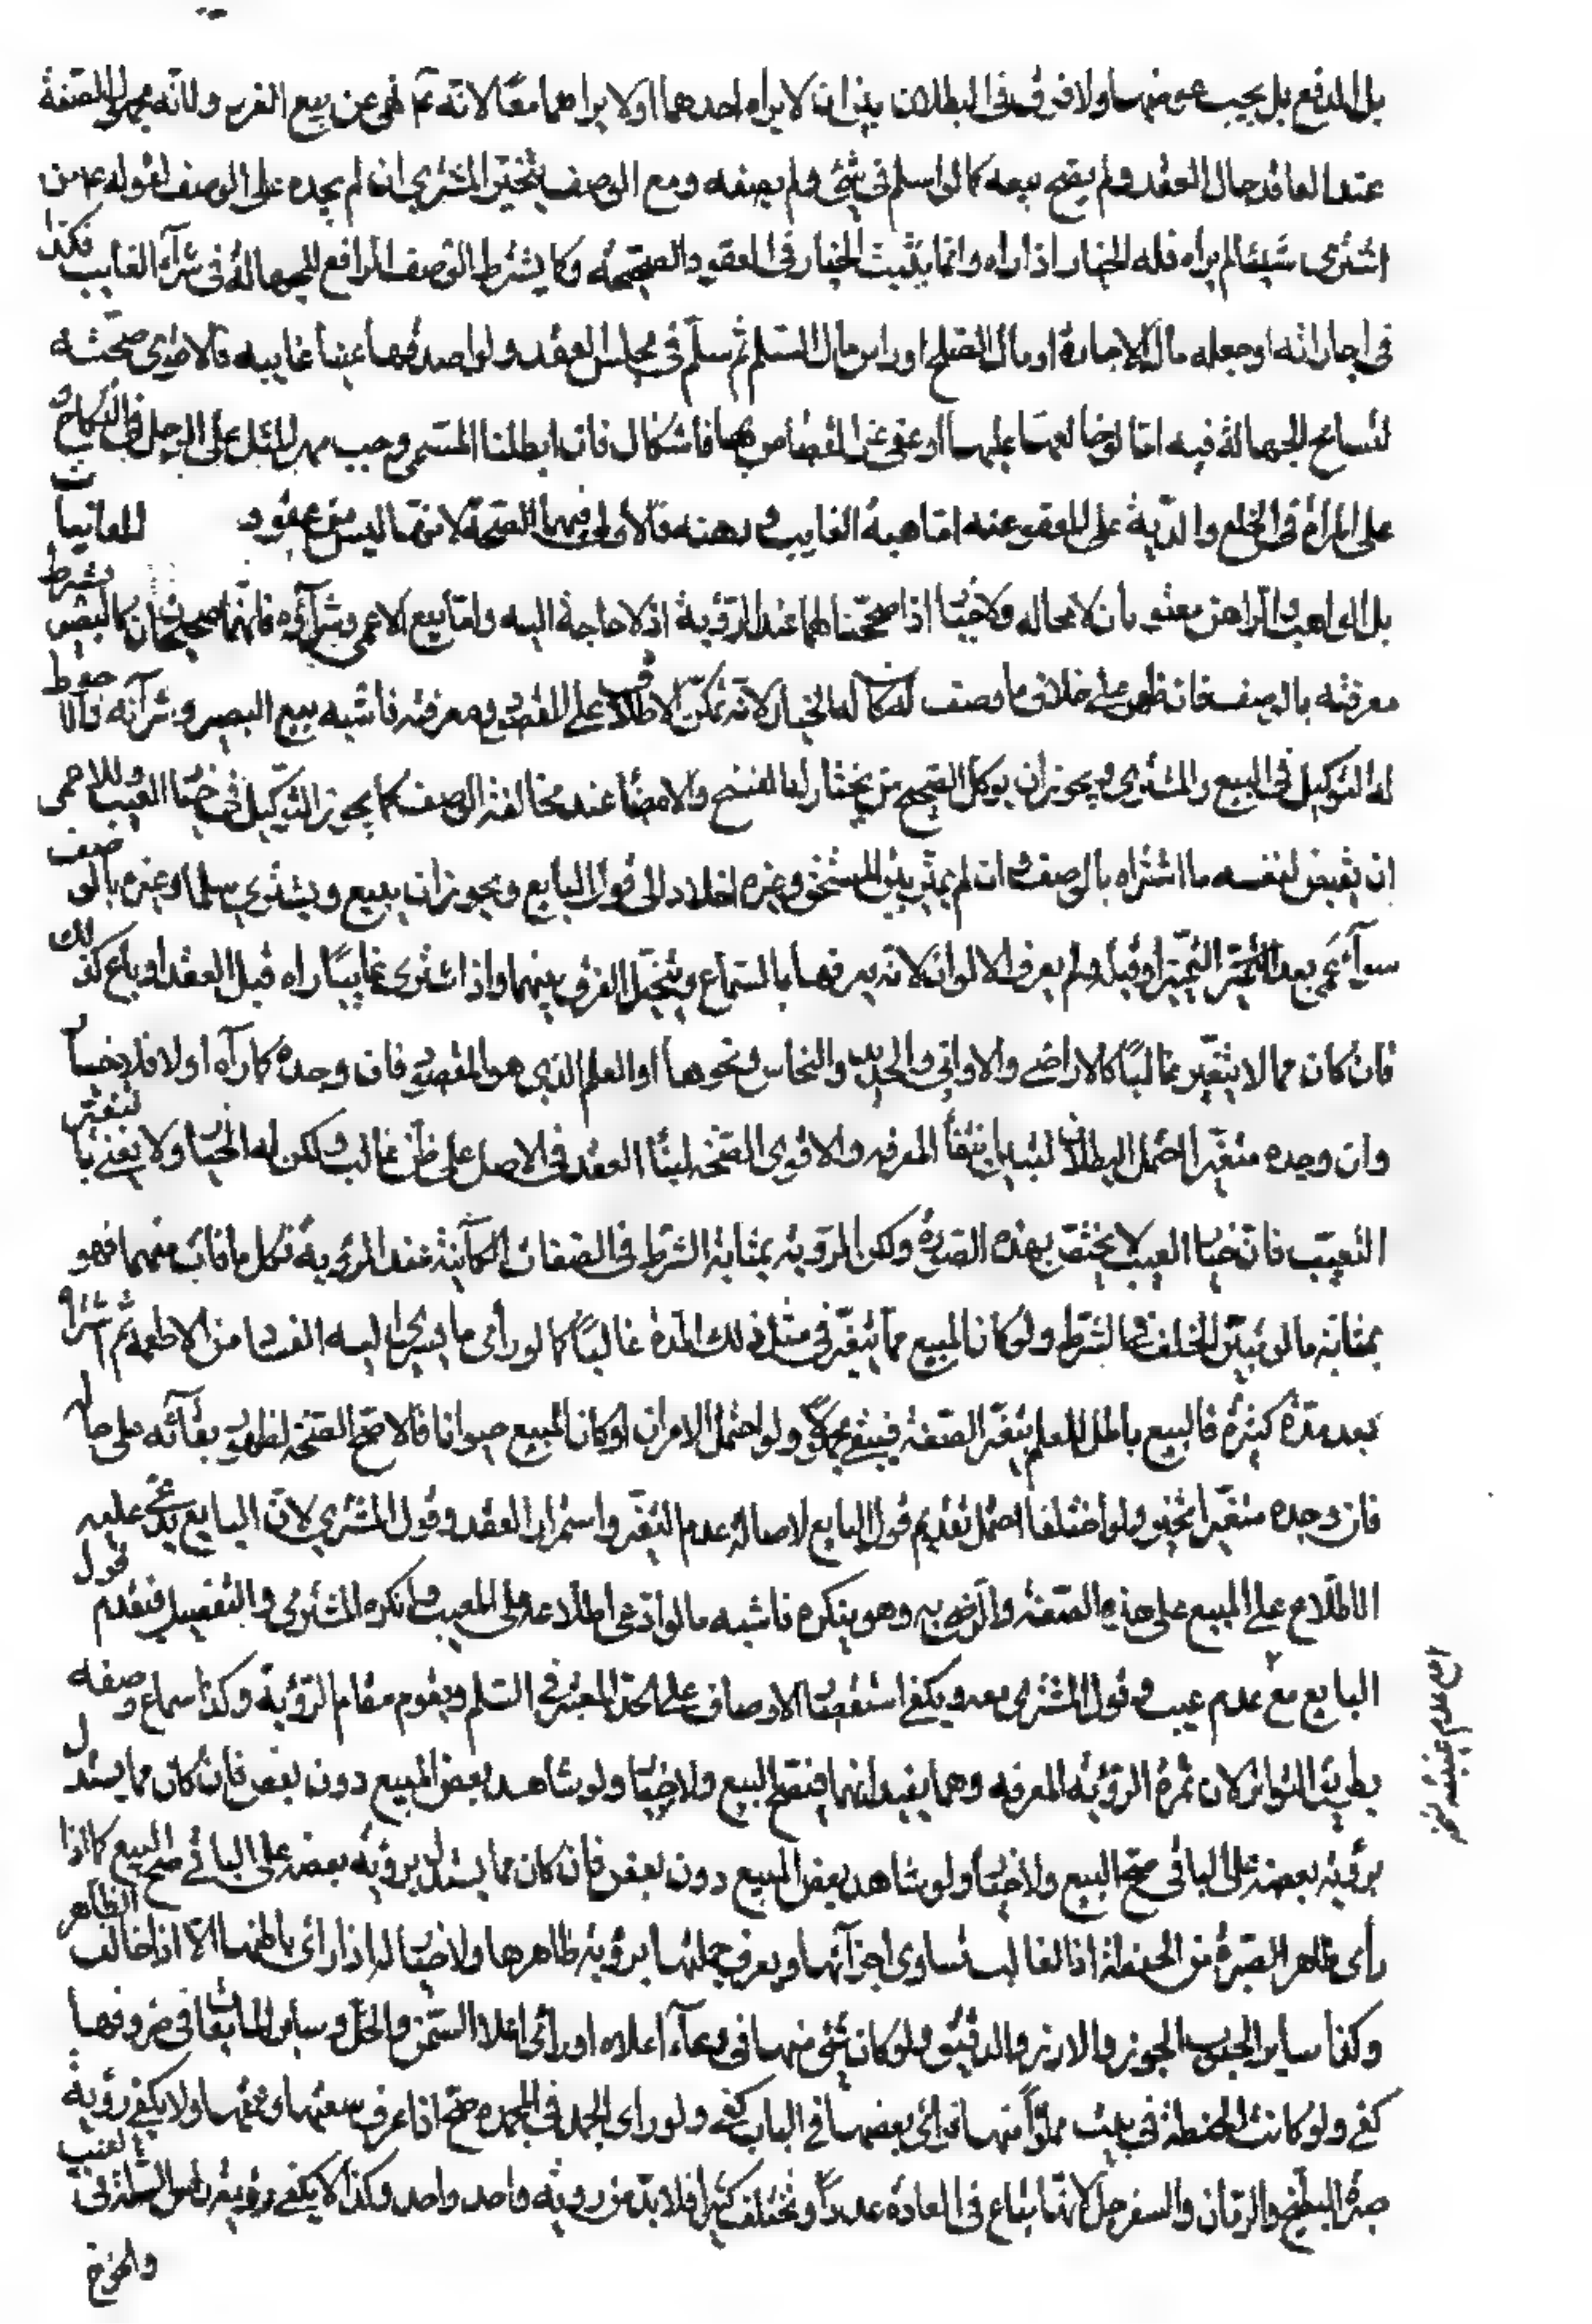 بل المدفع بل يجب عوضهما ولا فرق في البطلان بين ان لا يراه احدهما او لا يراهما معًا لانه ع نهى عن بيع الغرر ولانه مجهول الصفة
عند العاقد حال العقد ولم يصح بيعه كما لو اسلم في شئ ولم يصفه ومع الوصف يتخير المشترى ان لم يجده على الوصف لقوله ع من
اشترى شيئا لم يراه فله الخيار اذا راه وانما يثبت الخيار في العقود الصحيحه وكما يشترط الوصف الرافع للجهالة في شرآء الغايب فكذا
في اجارته او جعله مال الاجارة او مال الصلح او راس مال السلم ثم سلم في مجلس العقد ولو اصدقها عينا غايبه فالاقوى صحته
لتسامح الجهالة فيه اما لو خالعها عليها او عفى عن القصاص بها فاشكال فان ابطلنا المسمى وجب مهر المثل على الرجل في النكاح و
على المرأة في الخلع والدية على المعفو عنه اما هبة الغايب ورهنه فالاولى فيهما الصحة لانهما ليس من عقود المغابنات
بل الواهب والراهن مغبونان لا محاله ولا خيار اذا صححناهما عند الرؤية اذ لا حاجة اليه واما بيع الاعمى وشرآؤه فانهما صحيحان كالبصير بشرط
معرفته بالوصف فان ظهر على خلاف ما وصف كان له الخيار لانه تمكن الاطلاع على المقصود ومعرفته فاشبه بيع البصير وشرآئه والا
له التوكيل في البيع والمشترى ويجوز ان يوكل الصحيح من يختار له الفسخ والامضاء عند مخالفة الوصف كما يجوز التوكيل في خيار العيب وللاعمى
ان يقبض لنفسه ما اشتراه بالوصف ان لم يميز بين المستحق وغيره اخلاد الى قول البايع ويجوز ان يبيع ويشترى سلما وغيره بالوصف
سوآء عمى بعد التميز او قبله ولم يعرف الالوان لانه يعرفها بالسماع ويتخيل الفرق بينهما واذا اشترى غايبًا راه قبل العقد او باع كذلك
فان كان مما لا يتغير غالبًا كالاراضى والاوانى والحديد والنحاس ونحوها او العلم الذى هو المقصود فان وجده كما رآه اولا فلا خيار
وان وجده متغيرا احتمل البطلان لتبين انتفاء المعرفه والاقوى الصحه لبناء العقد في الاصل على ظن غالب ولكن له الخيار ولا يعنى بالتغير
التعيب فان خيار العيب لا يختص بهذه الصورة ولكن الرؤيه بمثابة الشرط في الصفات الكآئنة عند الرؤية فكل ما فات منهما فهو
بمثابة ما لو تبين الخلف في الشرط ولو كان المبيع مما يتغير في مثل ذلك المدة غالبًا كما لو رأى ما يسرع اليه الفساد من الاطعمه ثم اشتراه
بعد مدة كثيرة فالبيع باطل للعلم بتغير الصفة فيبقى مجهولا ولو احتمل الامران او كان المبيع حيوانا فالاصح الصحه لظهور بقآئه على حاله
فان وجده متغيرا تخير ولو اختلفا احتمل تقديم قول البايع لاصالة عدم التغير واستمرار العقد وقول المشترى لان البايع يدعى عليه
الاطلاع على المبيع على هذه الصفة والرضا به وهو ينكره فاشبه ما لو ادعى اطلاعه على العيب وانكره المشترى والتفصيل فتقدم قول
البايع مع عدم عيب وقول المشترى معه ويكفى استقصاء الاوصاف على الحد المعتبر في السلم ويقوم مقام الرؤية وكذا سماع وصفه
بطريق التواتر لان ثمرة الرؤية المعرفه وهما يفيدانهما فيصح البيع ولا خيار ولو شاهد بعض المبيع دون بعض فان كان مما يستدل
برؤية بعضه على الباقى صح البيع ولا خيار ولو شاهد بعض المبيع دون بعض فان كان مما يستدل برؤية بعضه على الباقي صح البيع كما اذا
رأى ظاهر الصبرة من الحنطة اذ الغالب تساوى اجزآئها ويعرف جملتها برؤية ظاهرها ولا خيار له اذا رأى باطنها الا اذا خالف الظاهر
وكذا ساير الحبوب الجوز والارز والدقيق ولو كان شئ منها في وعآء اعلاه او رأى اعلا السمن والخل وساير المايعات في ظروفها
كفى ولو كانت الحنطة في بيت مملوًا منها فرأى بعضها في الباب كفى ولو راى الجمد في المجمده صح اذا عرف سعتها وعمقها ولا يكفى رؤية
صبرة البطيخ والرمان والسفرجل لانها تباع في العادة عددًا وتختلف كثيرا فلا بد من رؤية واحد واحد وكذا لا يكفى رؤية راس السلة في العنب
والخوخ